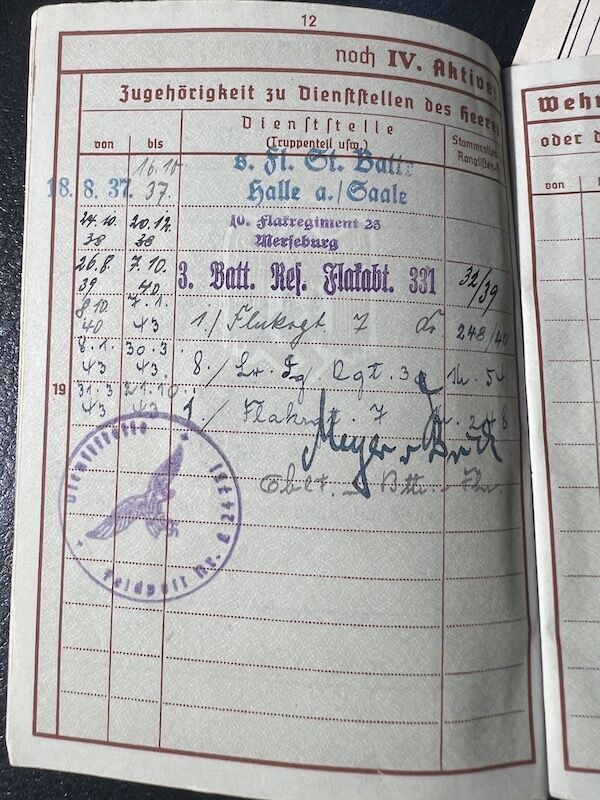 12
noch IV. Aktive
Zugehörigkeit zu Dienststellen des Heeres
von bis Dienststelle (Truppenteil usw.) Stammrollen Ranglisten
18. 8. 37. 16. 10. 37. s. Fl. St. Battr.
Halle a./Saale
24. 10. 38 20. 12. 38 10. Flakregiment 23
Merseburg
26. 8. 39 7. 10. 40 3. Batt. Res. Flakabt. 331 32/39
8 10. 40 7. 1. 43 1./ Flakrgt 7 248/40
8. 1. 43. 30. 3 43. 8./ Lw. Jg. Rgt. 3
19
31. 3 43 21. 10. 43 1./ Flakrgt. 7 248
Meyer
Oblt. u. Bttr.
Dienststelle
Feldpost Nr.
Wehr
oder d
von